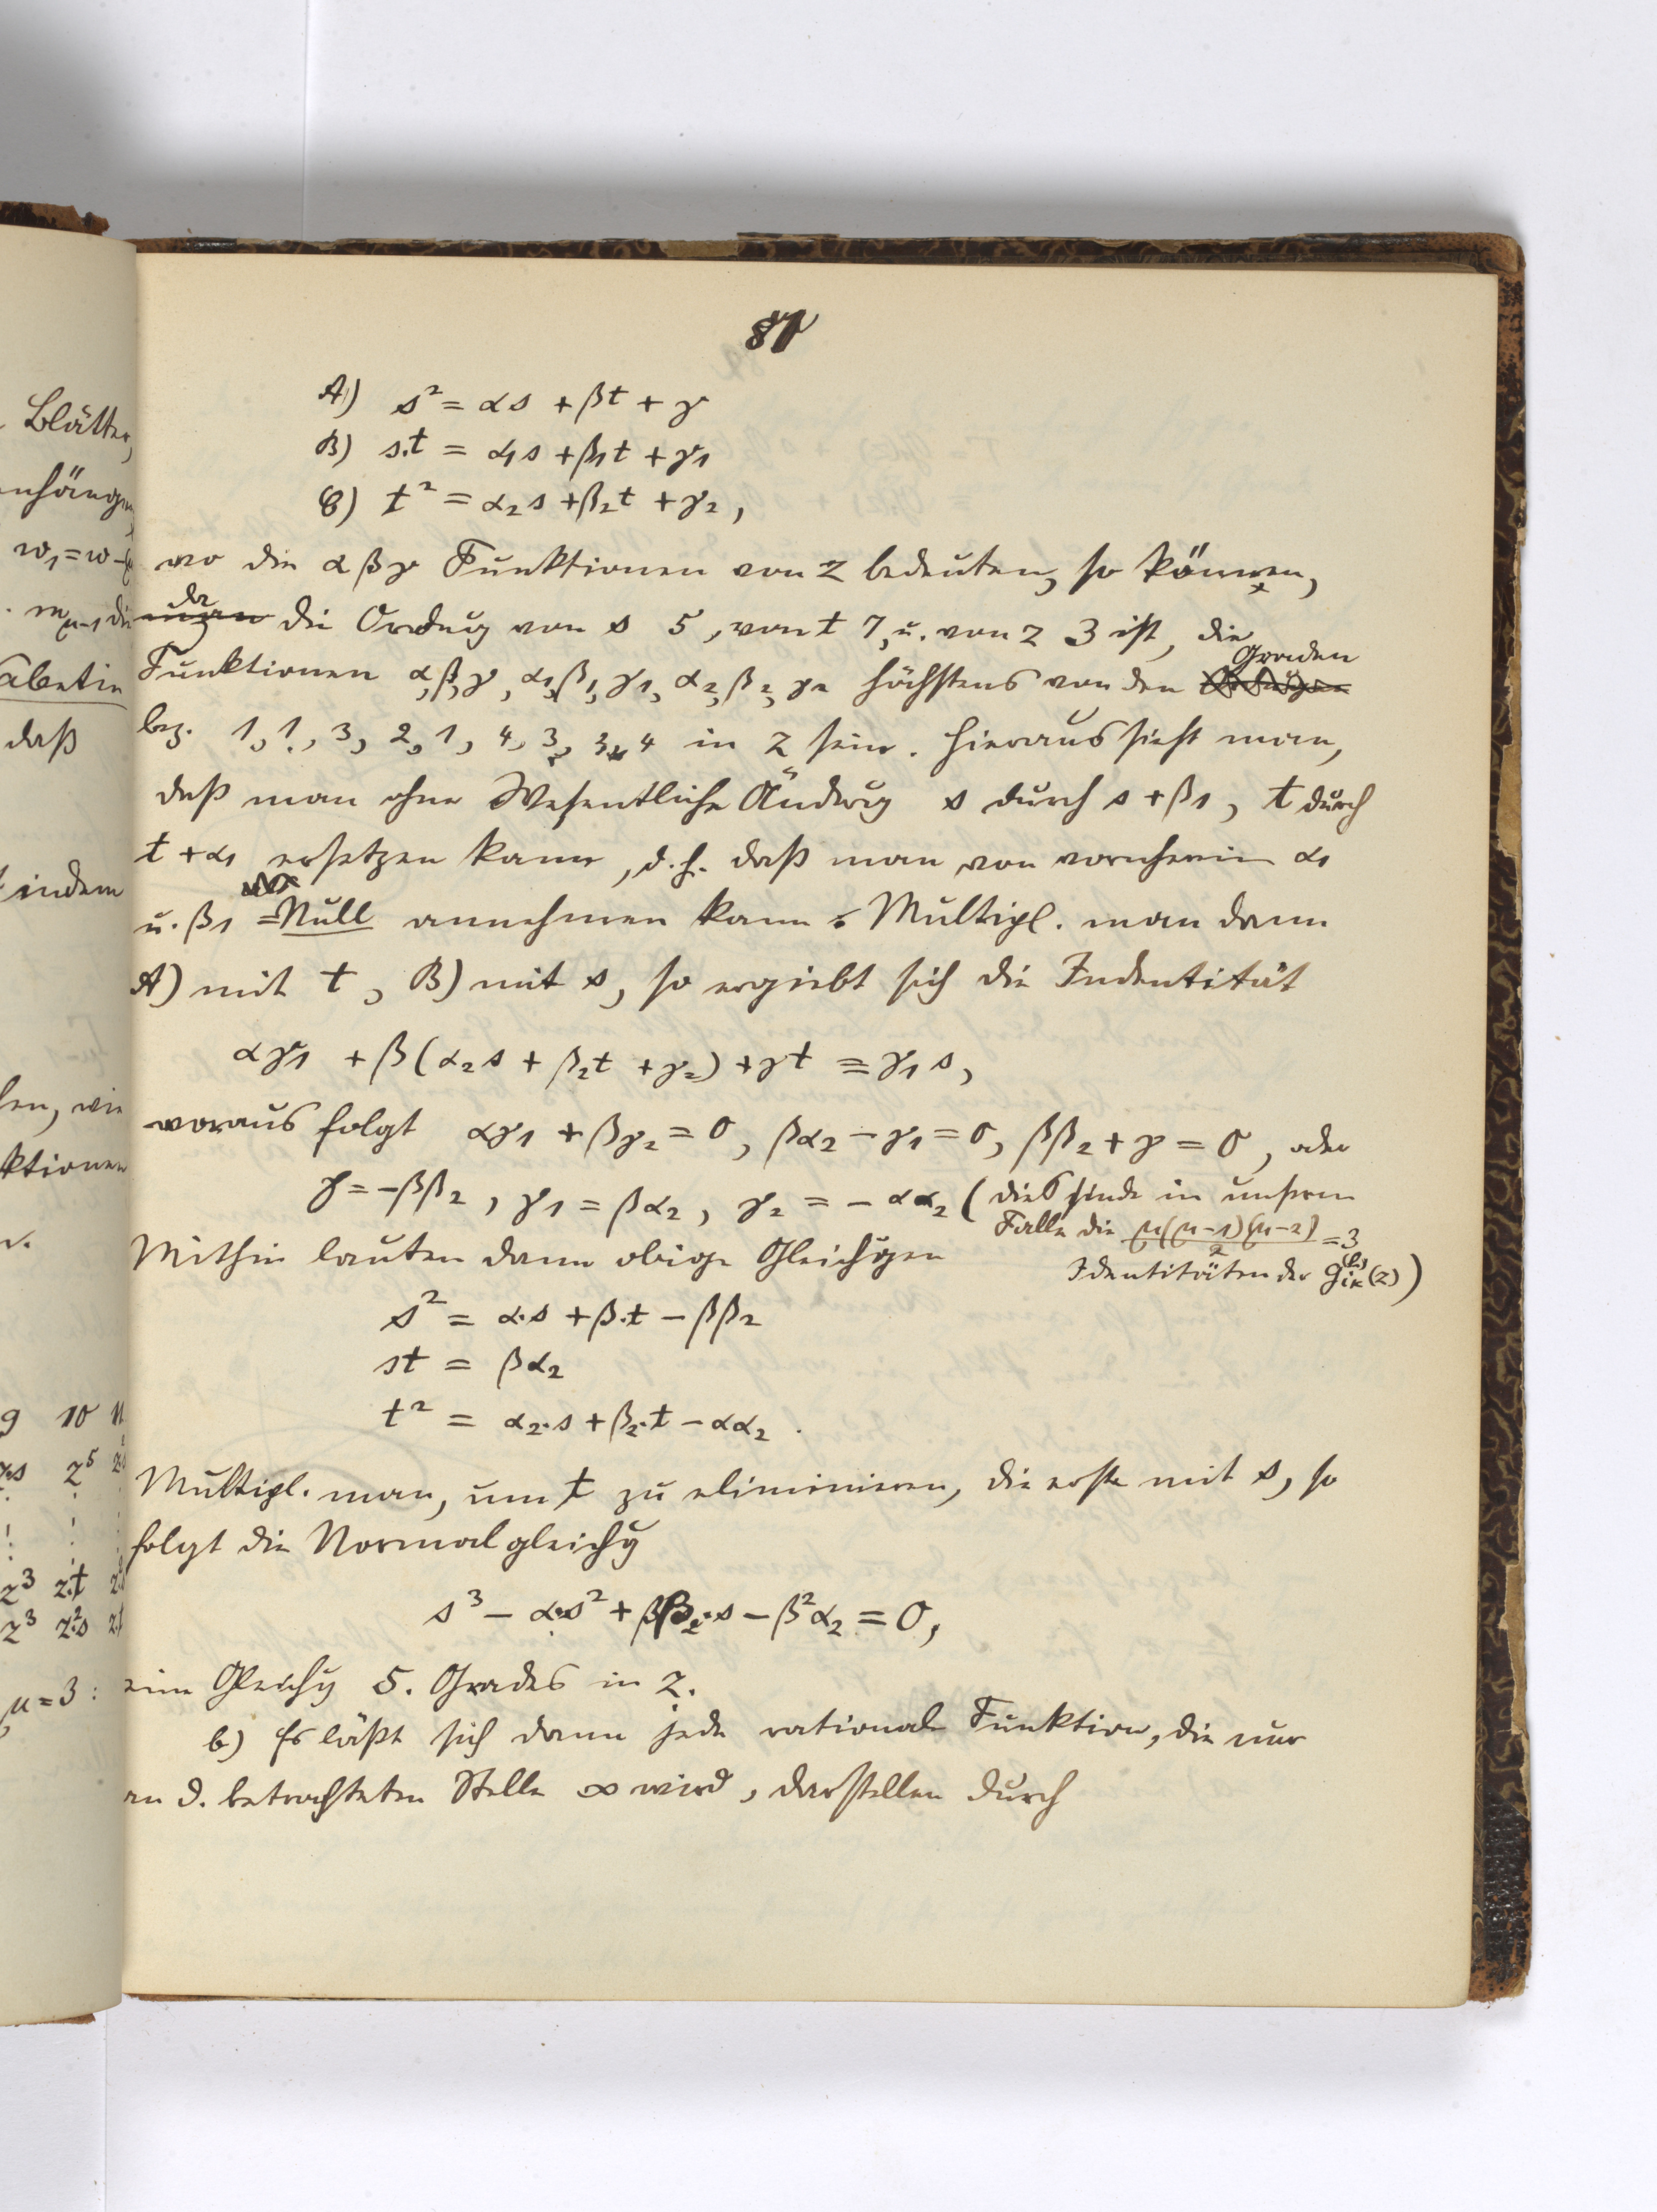 81
A) s² = αs + βt + γ
B) s.t = α₁s + β₁t + γ₁
C) t² = α₂s + β₂t + γ₂,
wo die α β γ Funktionen von z bedeuten, so können,
da die Ordnug von s 5, von t 7, u. von z 3 ist, die
Funktionen α, β, γ, α₁, β₁, γ₁, α₂, β₂, γ₂ höchstens von den Graden
bez. 1, 1, 3, 2, 1, 4, 3, 3, 4 in z sein. Hieraus sieht man,
daß man ohne Wesentliche Ändrug s durch s + β₁, t durch
t + α₁ ersetzen kann, d.h. daß man von vornherein α₁
u. β₁ = Null annehmen kann. Multipl. man dann
A) mit t, B) mit s, so ergiebt sich die Indentität
αγ₁ + β(α₂s + β₂t + γ₂) + γt ≡ γ₁s,
woraus folgt αγ₁ + βγ₂ = 0, βα₂ − γ₁ = 0, ββ₂ + γ = 0, oder
γ = −ββ₂, γ₁ = βα₂, γ₂ = − αα₂ (dies sind in unserm
Falle die μ(μ−1)(μ−2)/2 = 3
Identitäten der g_ik^(l)(z))
Mithin lauten dann obige Gleichgen
s² = α.s + β.t − ββ₂
st = βα₂
t² = α₂.s + β₂.t − αα₂.
Multipl. man, um t zu eliminieren, die erste mit s, so
folgt die Normalgleichg
s³ − α.s² + ββ₂.s − β²α₂ = 0,
eine Gleichg 5. Grades in z.
b) Es läßt sich dann jede rationale Funktion, die nur
an d. betrachteten Stelle ∞ wird, darstellen durch
Blätter,
w₁ = w −
daß
indem
wie
ktionen
9 10
z⁵
z³ z.t
z³ z².s
μ = 3 :